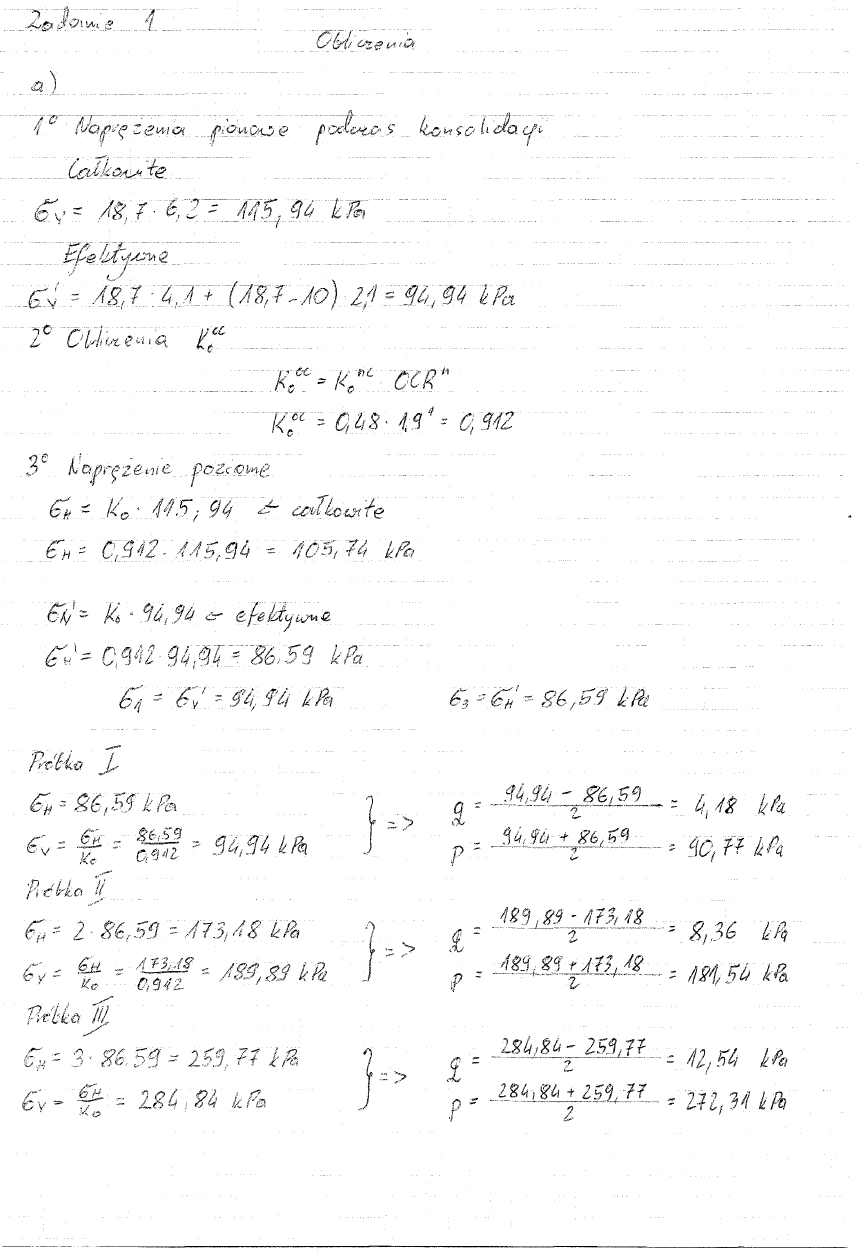 Zadanie 1
Obliczenia
a)
1° Naprężenia pionowe podczas konsolidacji
Całkowite
σv = 18,7 · 6,2 = 115,94 kPa
Efektywne
σv' = 18,7 · 4,1 + (18,7 - 10) · 2,1 = 94,94 kPa
2° Obliczenia K₀ᵒᶜ
K₀ᵒᶜ = K₀ⁿᶜ · OCRⁿ
K₀ᵒᶜ = 0,48 · 1,9¹ = 0,912
3° Naprężenie poziome
σH = K₀ · 115,94 ← całkowite
σH = 0,912 · 115,94 = 105,74 kPa
σH' = K₀ · 94,94 ← efektywne
σH' = 0,912 · 94,94 = 86,59 kPa
σ₁ = σv' = 94,94 kPa σ₃ = σH' = 86,59 kPa
Próbka I
σH = 86,59 kPa } => q = (94,94 - 86,59)/2 = 4,18 kPa
σv = σH/K₀ = 86,59/0,912 = 94,94 kPa p = (94,94 + 86,59)/2 = 90,77 kPa
Próbka II
σH = 2 · 86,59 = 173,18 kPa } => q = (189,89 - 173,18)/2 = 8,36 kPa
σv = σH/K₀ = 173,18/0,912 = 189,89 kPa p = (189,89 + 173,18)/2 = 181,54 kPa
Próbka III
σH = 3 · 86,59 = 259,77 kPa } => q = (284,84 - 259,77)/2 = 12,54 kPa
σv = σH/K₀ = 284,84 kPa p = (284,84 + 259,77)/2 = 272,31 kPa